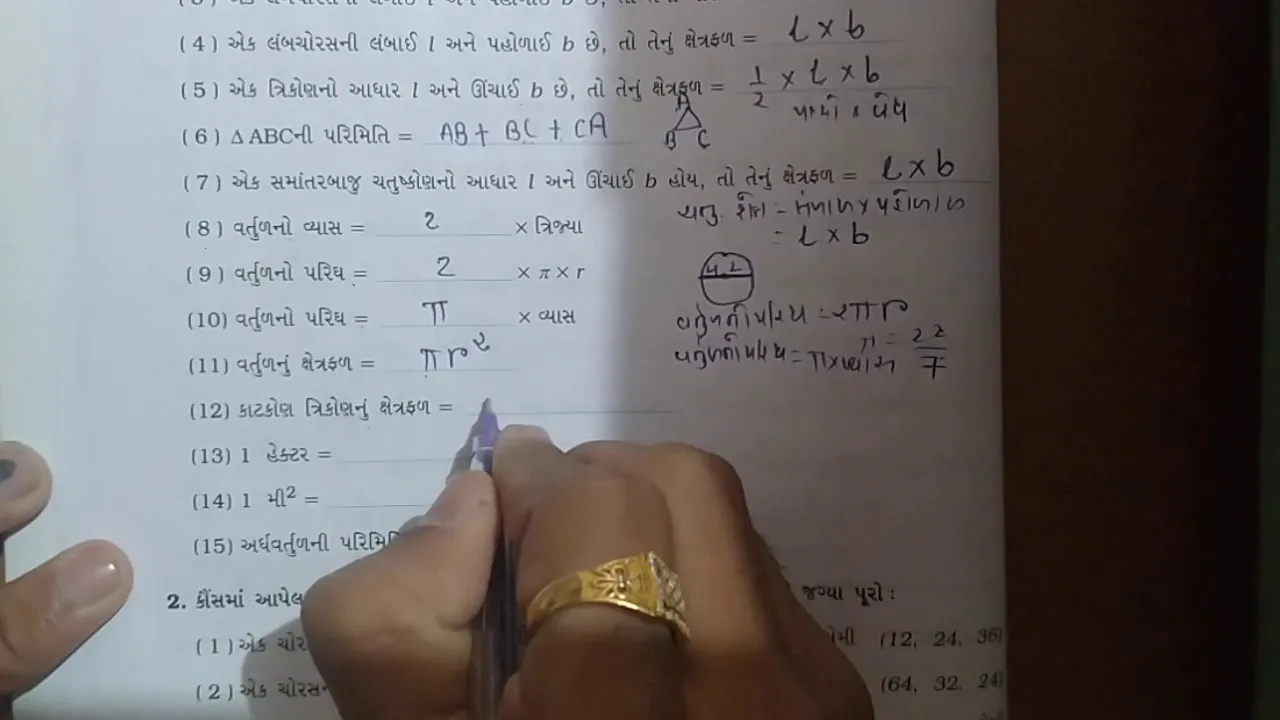 (4) એક લંબચોરસની લંબાઈ l અને પહોળાઈ b છે, તો તેનું ક્ષેત્રફળ = l × b
(5) એક ત્રિકોણનો આધાર l અને ઊંચાઈ b છે, તો તેનું ક્ષેત્રફળ = 1/2 × l × b
પાયો × વેધ
(6) Δ ABCની પરિમિતિ = AB + BC + CA
A
B C
(7) એક સમાંતરબાજુ ચતુષ્કોણનો આધાર l અને ઊંચાઈ b હોય, તો તેનું ક્ષેત્રફળ = l × b
= l × b
(8) વર્તુળનો વ્યાસ = 2 × ત્રિજ્યા
(9) વર્તુળનો પરિઘ = 2 × π × r
(10) વર્તુળનો પરિઘ = π × વ્યાસ
= ૨πr
π = 22/7
(11) વર્તુળનું ક્ષેત્રફળ = πr²
= π × વ્યાસ
(12) કાટકોણ ત્રિકોણનું ક્ષેત્રફળ =
(13) 1 હેક્ટર =
(14) 1 મી² =
(15) અર્ધવર્તુળની
2. કૌંસમાં આપેલ જગ્યા પૂરો :
(1) એક (12, 24, 36)
(2) એક (64, 32, 24)